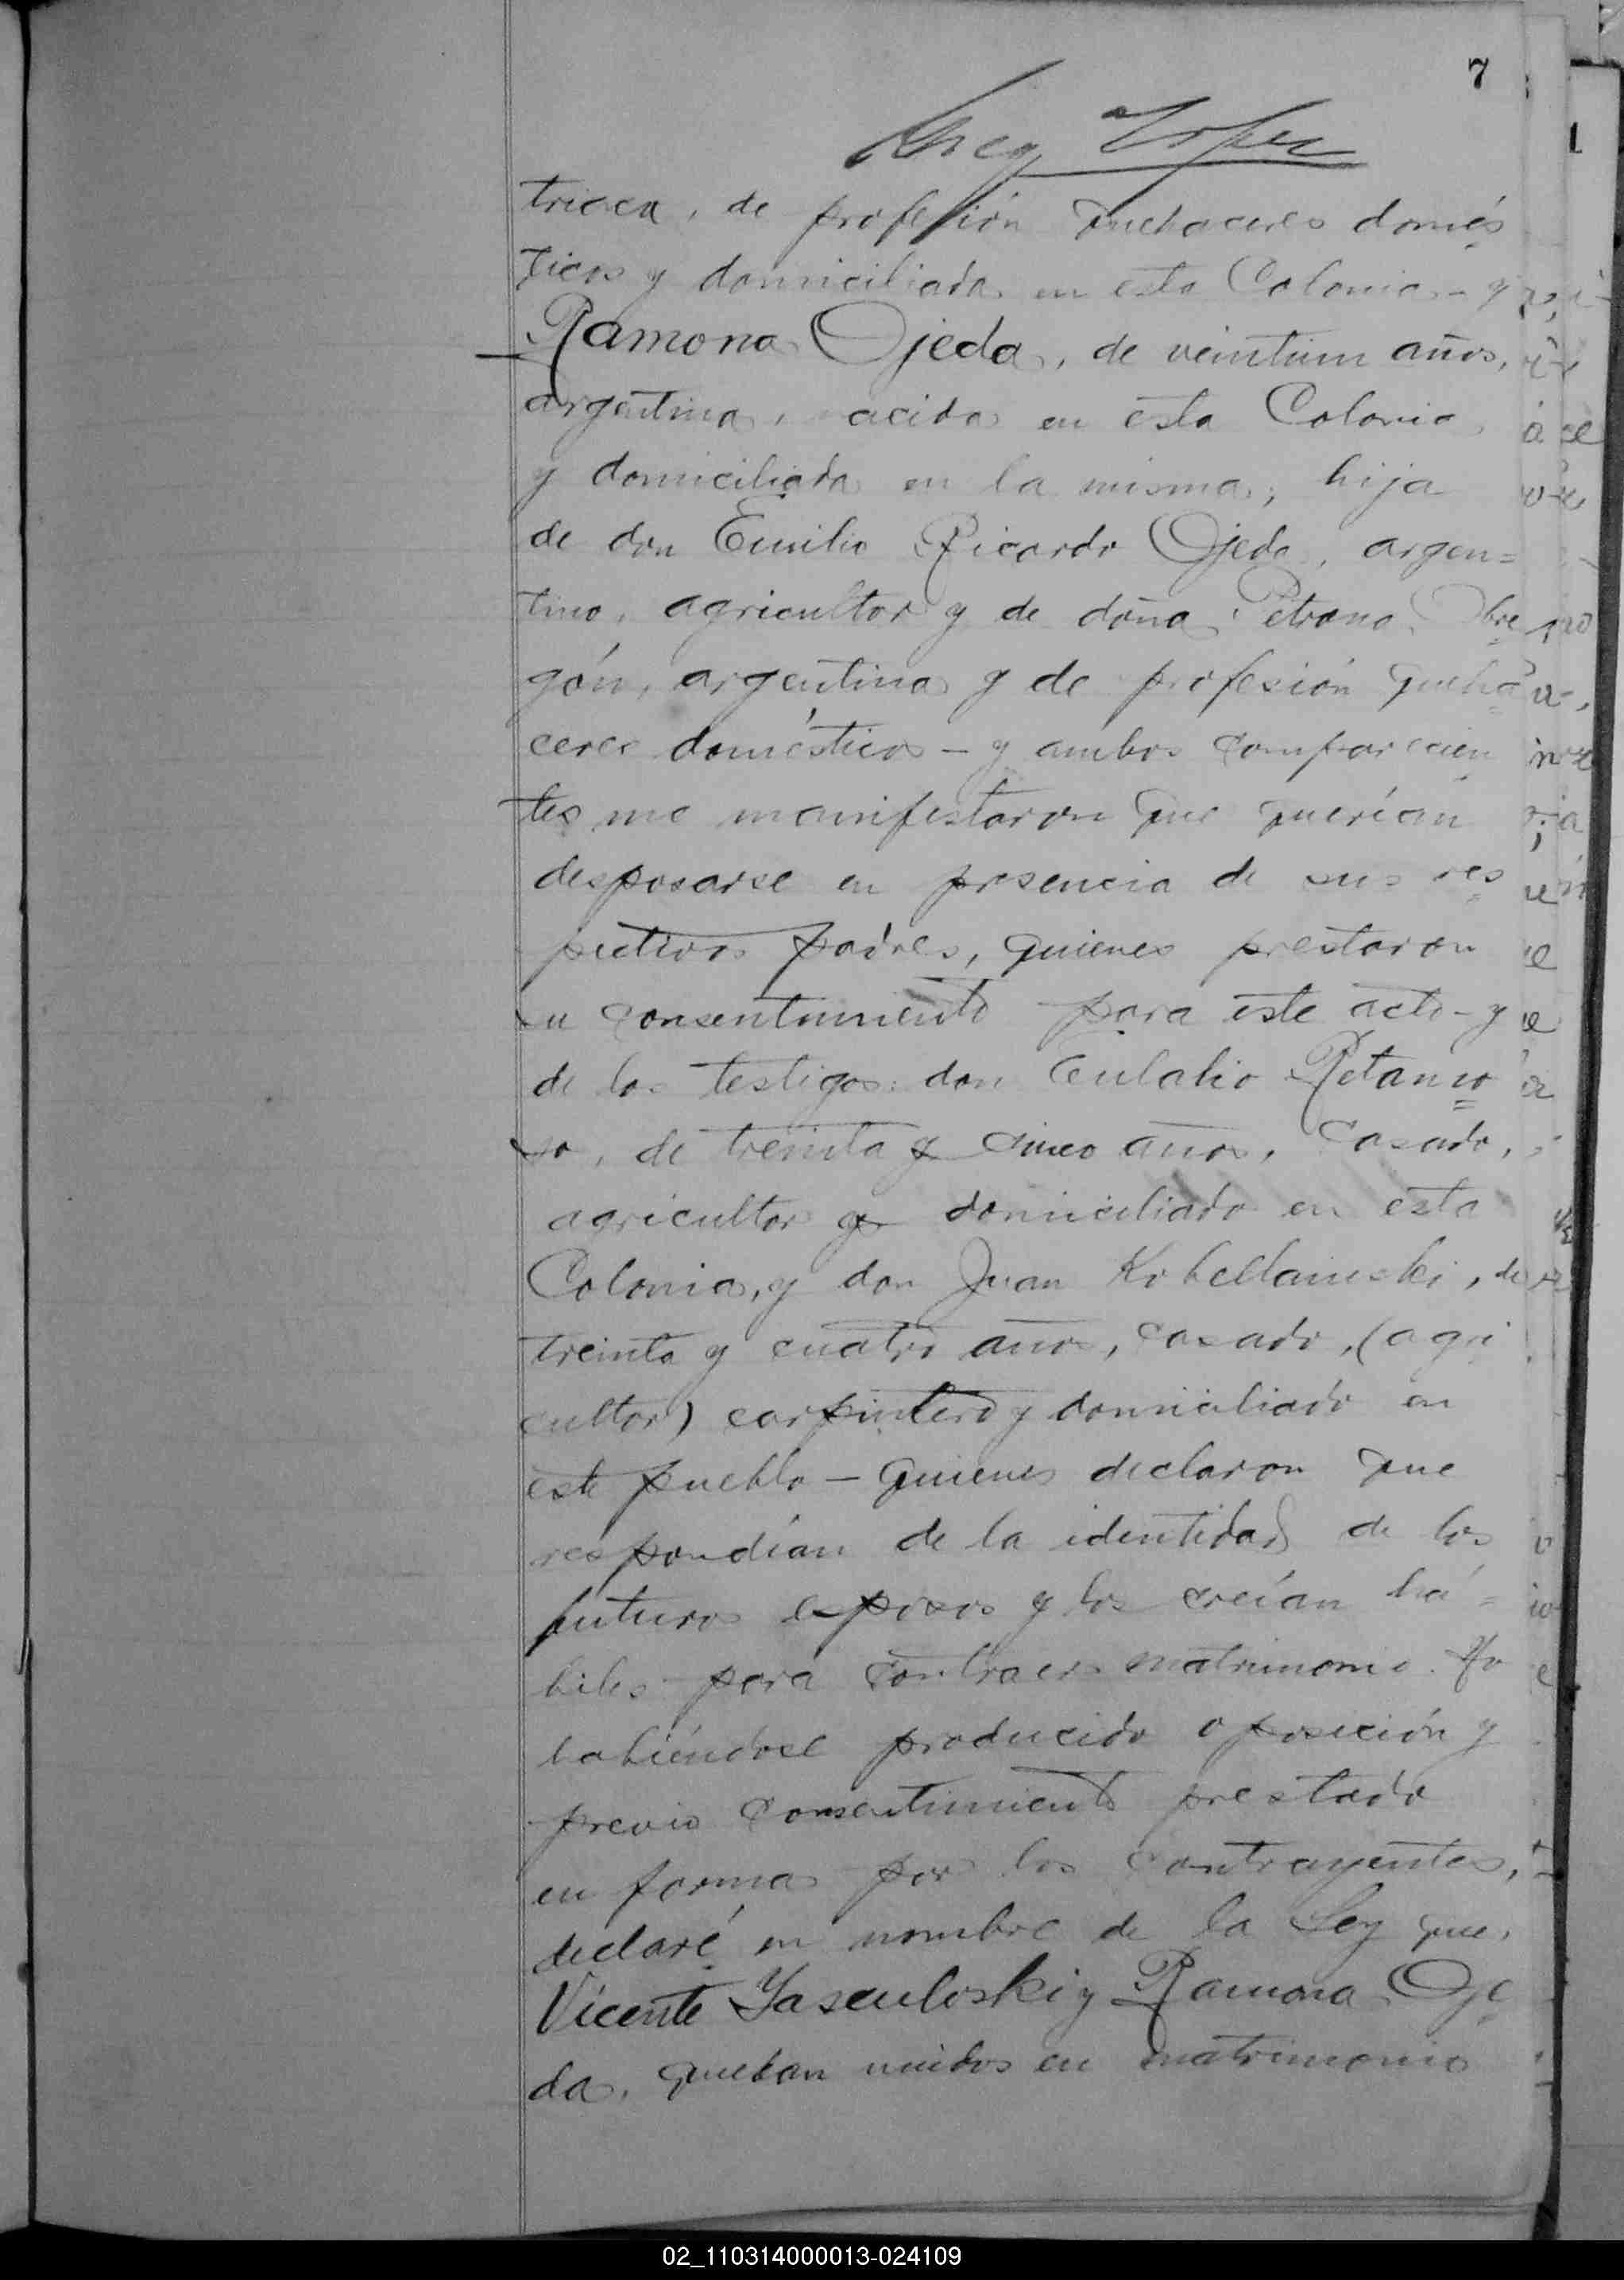 7
triaca, de profesión quehaceres domés
ticos y domiciliada en esta Colonia - y
Ramona Ojeda, de veintiun años,
argentina, nacida en esta Colonia
y domiciliada en la misma, hija
de don Emilio Ricardo Ojeda, argen=
tino, agricultor y de doña Petrona Obre
gón, argentina y de profesión queha
ceres domésticos - y ambos comparecien
tes me manifestaron que querían
desposarse en presencia de sus res
pectivos padres, quienes prestaron
su consentimiento para este acto - y
de los testigos: don Eulalio
so, de treinta y cinco años, casado,
agricultor y domiciliado en esta
Colonia, y don Juan, de
treinta y cuatro años, casado, (agri
cultor) carpintero y domiciliado en
este pueblo - quienes declaron que
respondían de la identidad de los
futuros esposos y los creían há=
biles para contraer matrimonio. No
habiéndose producido oposición y
previo consentimiento prestado
en forma por los contrayentes,
declaré en nombre de la Ley que,
Vicente Yasculoski y Ramona Oje
da, quedan unidos en matrimonio
02_110314000013-024109